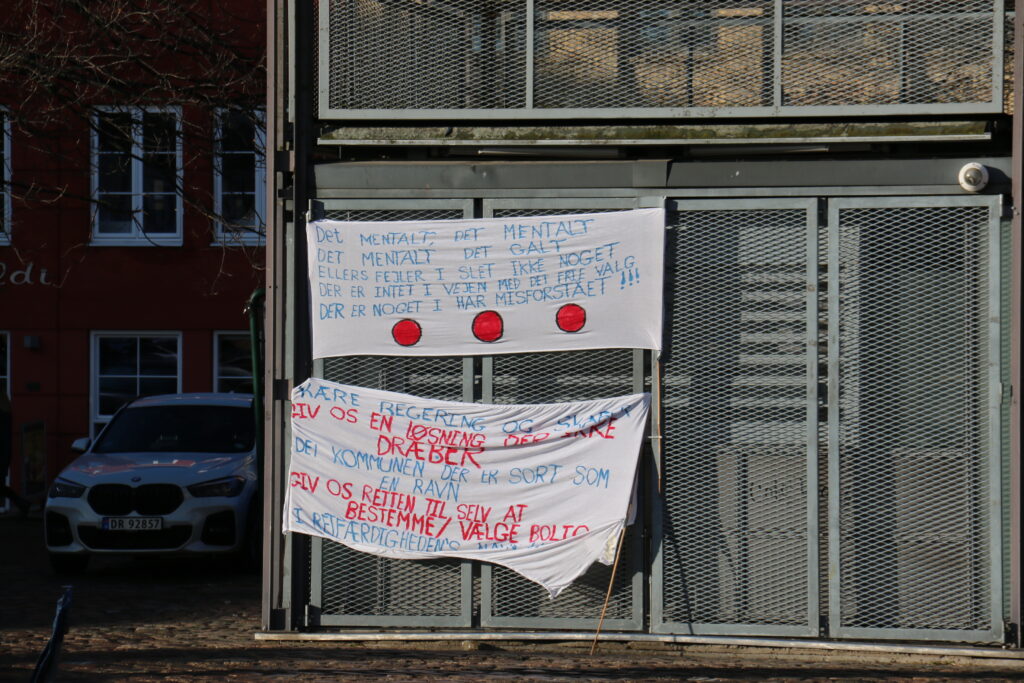 Det MENTALT; DET MENTALT
DET MENTALT DET GALT
ELLERS FEJLER I SLET IKKE NOGET
DER ER INTET I VEJEN MED DET FRIE VALG
DER ER NOGET I HAR MISFORSTÅET !!!
KÆRE REGERING OG
GIV OS EN LØSNING DER IKKE
DRÆBER
KOMMUNEN DER ER SORT SOM
EN RAVN
GIV OS RETTEN TIL SELV AT
BESTEMME/VÆLGE BOLIG
I RETFÆRDIGHEDEN'S NAVN
DR 92857